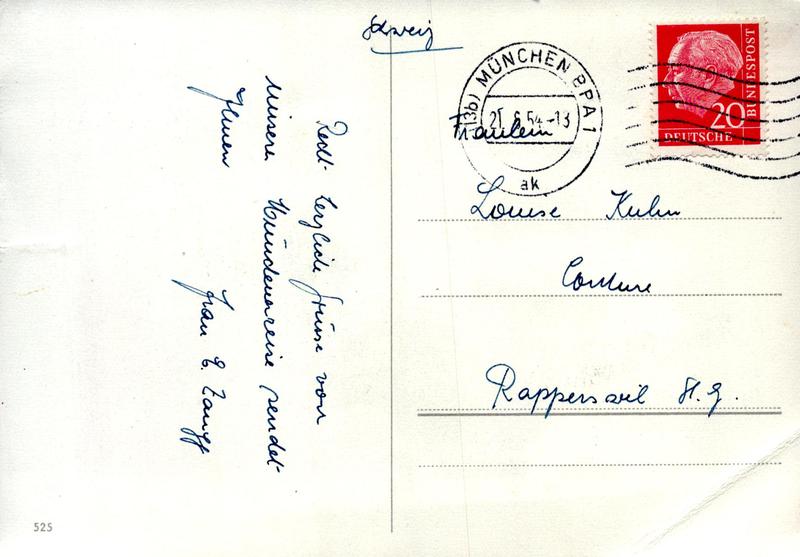 Schweiz
(13b) MÜNCHEN BPA 1
21.6.54-13
ak
20
DEUTSCHE
BUNDESPOST
Fräulein
Louise Kuhn
Couture
Rapperswil St. G.
Recht herzliche Grüsse von
unserer Münchenerreise sendet
Ihnen
Frau E. Zaugg
525